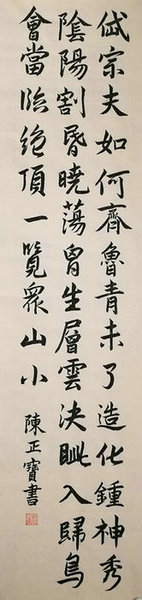 岱宗夫如何齊魯青未了造化鍾神秀
陰陽割昏曉蕩胷生層雲決眦入歸鳥
會當臨絕頂一覽眾山小
陳正寶書